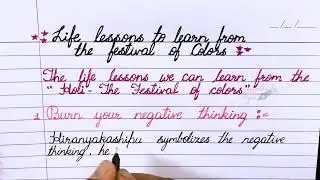 Life lessons to learn from
the festival of Colors
The life lessons we can learn from the
"Holi - The Festival of colors"
1 Burn your negative thinking :=
Hiranyakashipu symbolizes the negative
thinking, he